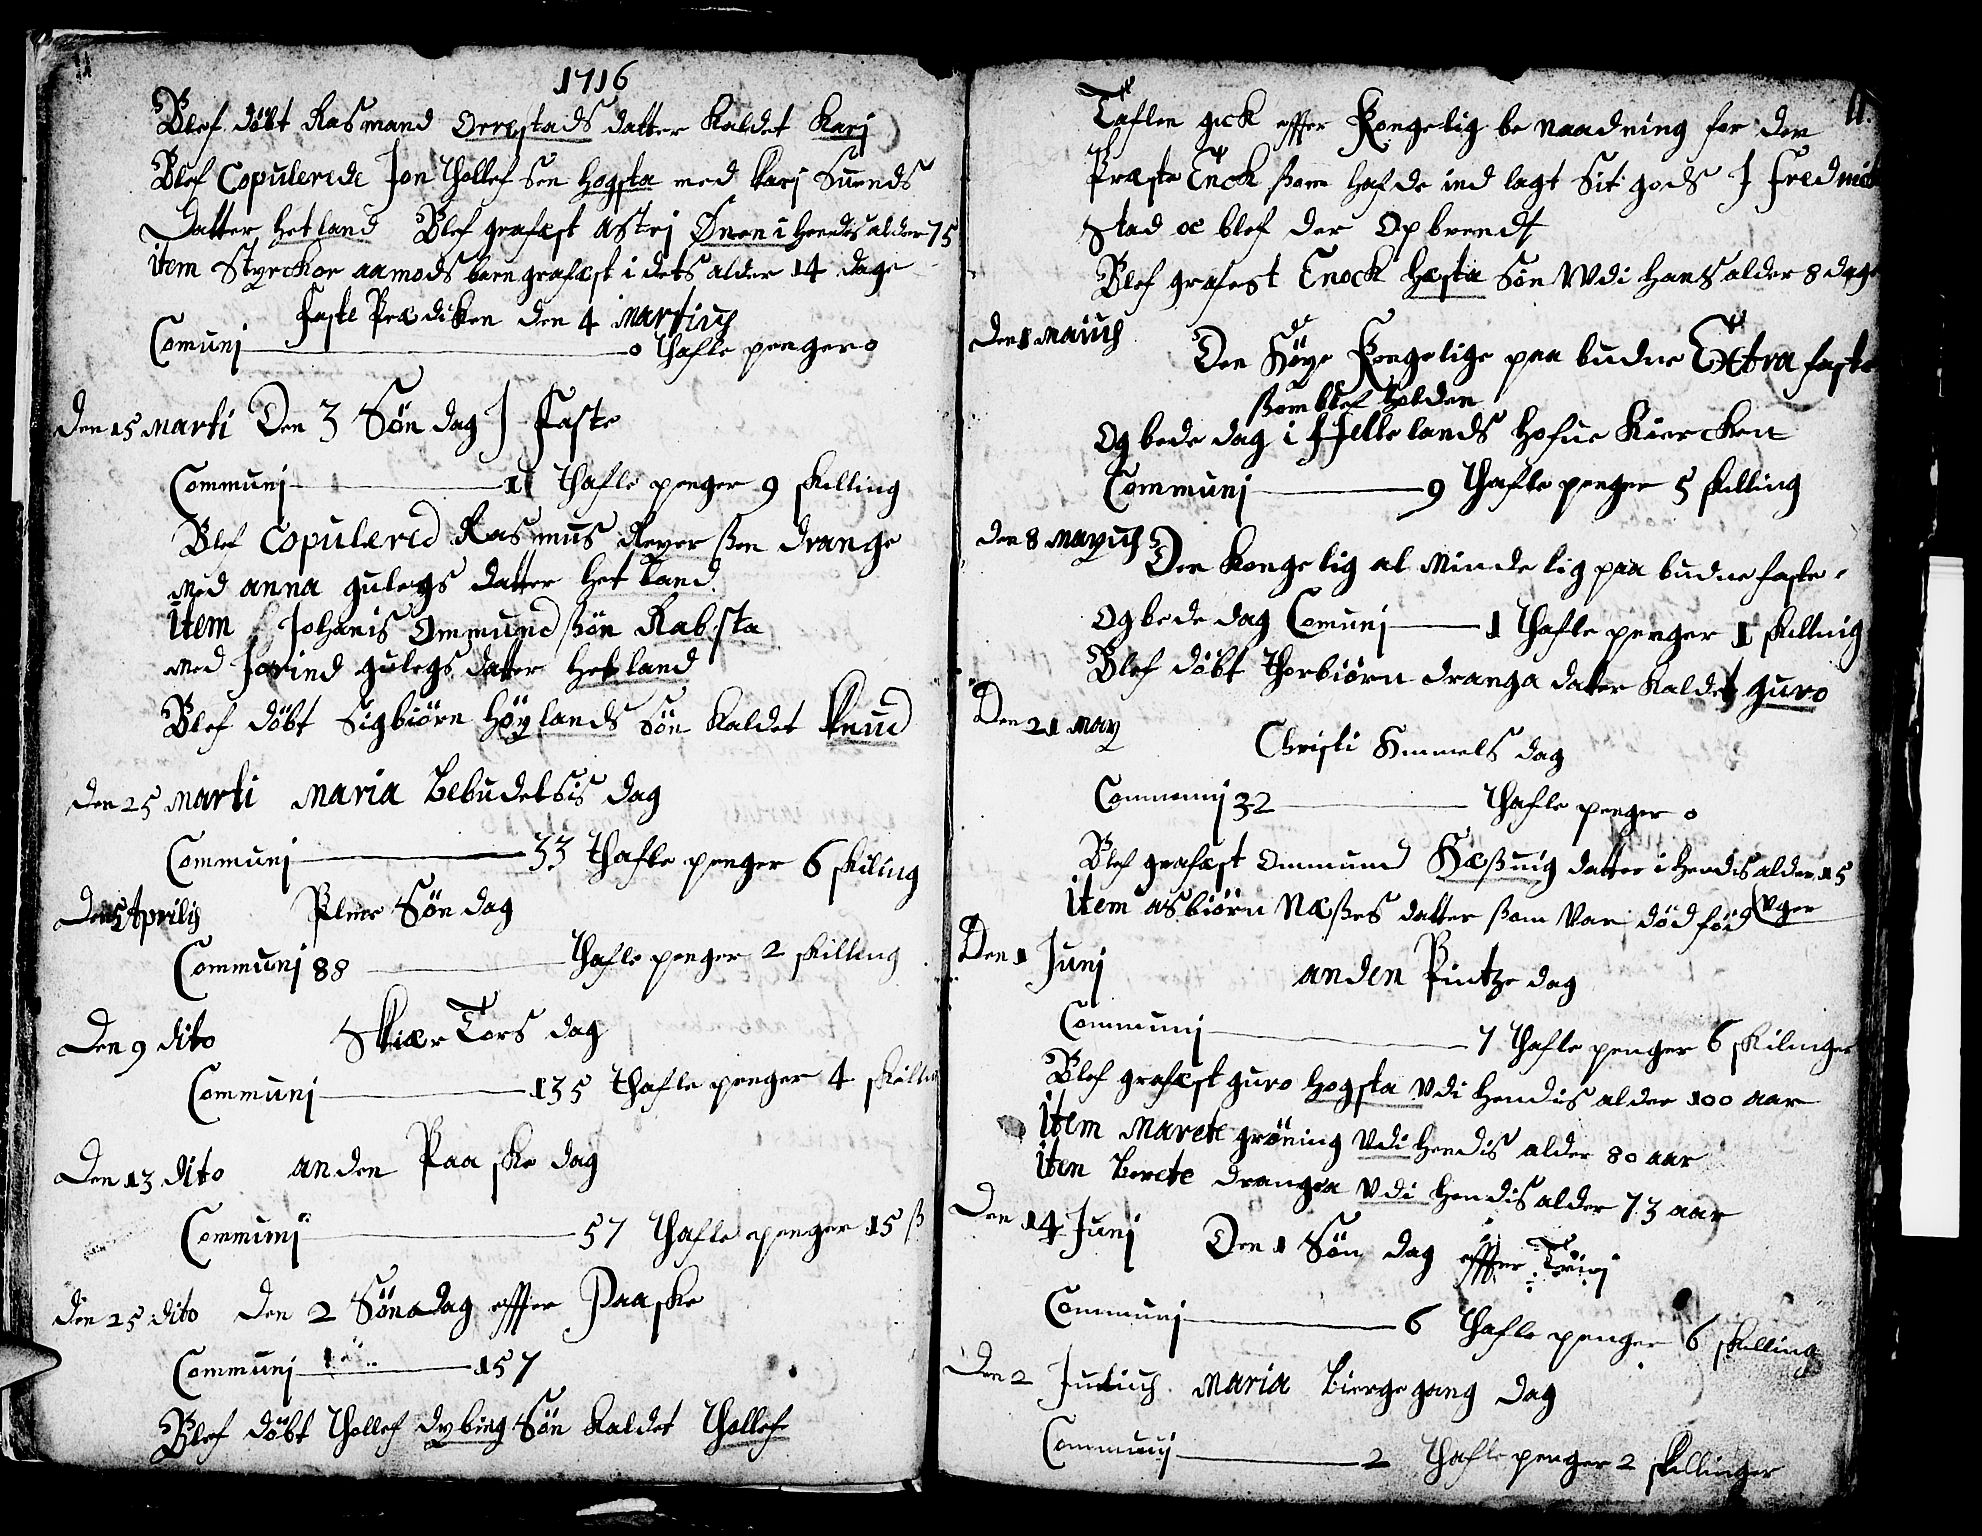 1716
Blef döbt Rasmand Orrestads datter kaldet Karj
Blef Copulerede Jon Thollef sen Hogsta med karj Suends
Datter Hetland Blef grafæst Astrj Ønen i Hendes alder 75
item Styrckor aamods barn grafæst i dets alder 14 dage
Faste Prædicken den 4 Martius
Comunj — 0 Thafle penger 0
Den 15 Marti Den 3 Søndag J Faste
Communj — 11 Thafle penger 9 skilling
Blef Copulered Rasmus Reyer ßen drange
med anna gulegs datter Hetland
item Johanis Ommund ßøn Rabsta
med Jorind gulegs datter Hetland
Blef döbt Sigbiörn Höylands Søn kaldet knud
Den 25 Marti Maria Bebudelsis dag
Communj — 33 Thafle penger 6 skiling
Den 5 Aprilis Palme Søndag
Communj 88 — Thafle penger 2 skilling
Den 9 dito Skiær Tors dag
Communj — 135 Thafle penger 4 skilli
Den 13 dito anden Paa ske dag
Communj — 57 Thafle penger 15 ß
Den 25 dito den 2 Sønadag effter Paaske
Communj — 157
Blef döbt Thollef dybing Søn kaldet Thollef
11.
Taflen gick effter Kongelig be naadning for den
Præste Enck ßom hafde ind lagt Sit gods J Fredrick
Stad oc blef der Opbrendt
Blef grafest Enock Hæsta Søn Wdi Hans alder 8 dage
Den 1 Maius Den Höye Kongelige paa budne Extra faste
ßom blef Holden
Og bede dag i Hellelands Hofue Kiercken
Communj — 9 Thafle penger 5 skilling
Den 8 Mayus Den Kongelig al Mindelig paa budne faste
Og bede dag Comunj — 1 Thafle penger 1 skilling
Blef döbt Thorbiörn dranga datter kaldet guro
Den 21 May Christi Himmels dag
Communj 32 — Thafle penger 0
Blef grafæst Ommund Hæßuig datter i Hendis alder 15
item asbiörn Næßes datter ßom Var død fød (Vger
Den 1 Junj anden Pintze dag
Communj — 7 Thafle penger 6 skilinger
Blef grafæst guro Hogsta Vdi Hendis alder 100 aar
item Marete gröning Vdi Hendis alder 80 aar
iten Berete drangea Vdi Hendis alder 73 aar
Den 14 Junj Den 1 Søn dag effter Trinj
Communj — 6 Thafle penger 6 skilling
Den 2 Julius Maria Bierge gang dag
Communj — 2 Thafle penger 2 skillinger